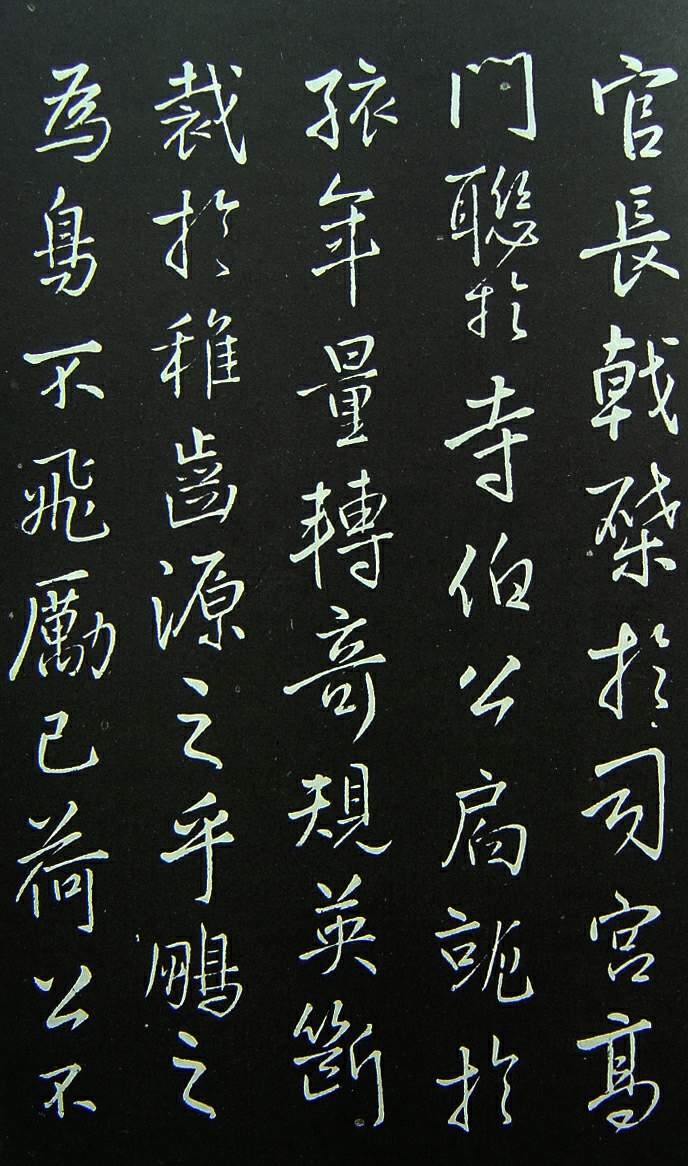 官長戟於司宮高
門聯於寺伯公扃於
孩年量轉奇規英斷
裁於稚齒源之乎鵬之
為鳥不飛勵己荷公不